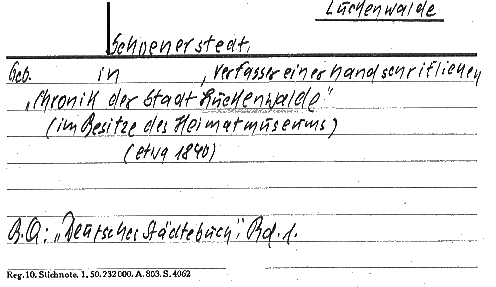 Luckenwalde
Schoenerstedt,
Geb. in , Verfasser einer handschriftlichen
„Chronik der Stadt Luckenwalde"
(im Besitze des Heimatmuseums)
(etwa 1840)
B.Q.: „Deutsches Städtebuch", Bd. 1.
Reg. 10. Stichnote. 1. 50. 232000. A. 803. S. 4062